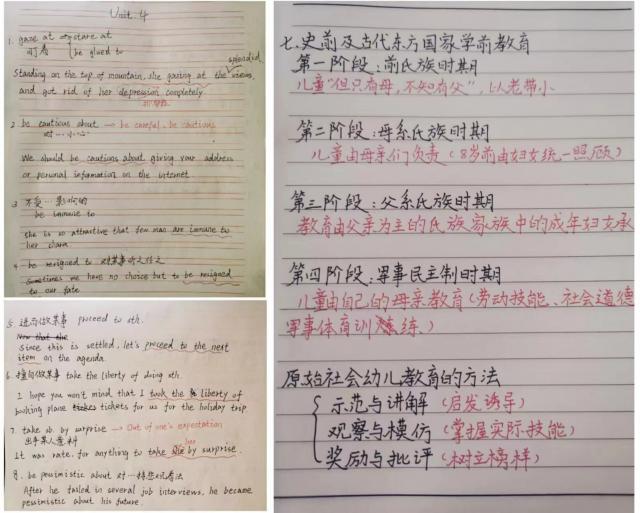 Unit 4
1. gaze at → stare at
盯着 be glued to
splendid
Standing on the top of mountain, she gazing at the views,
and got rid of her depression completely
2. be cautious about → be careful, be cautious
对…小心
We should be cautious about giving your address
or personal information on the internet
3. 不受…影响的
be immune to
she is so attractive that few man are immune to
her charm
4. be resigned to 对某事听之任之
Sometimes we have no choice but to be resigned
to our fate
5. 进而做某事 proceed to sth.
Now that the
Since this is settled, let's proceed to the next
item on the agenda.
6. 擅自做某事 take the liberty of doing sth.
I hope you won't mind that I took the liberty of
booking plane tickets for us for the holiday trip
7. take sb. by surprise → Out of one's expectation
出乎某人意料
her
It was rate for anything to take she by surprise.
8. be pessimistic about 对…持悲观看法
After he failed in several job interviews, he became
pessimistic about his future.
七、史前及古代东方国家学前教育
第一阶段：前氏族时期
儿童"但只有母，不知有父"，以老带小
第二阶段：母系氏族时期
儿童由母亲们负责（8岁前由妇女统一照顾）
第三阶段：父系氏族时期
教育由父亲为主的氏族家族中的成年妇女承
第四阶段：军事民主制时期
儿童由自己的母亲教育（劳动技能、社会道德
军事体育训练）
原始社会幼儿教育的方法
示范与讲解（启发诱导）
观察与模仿（掌握实际技能）
奖励与批评（树立榜样）